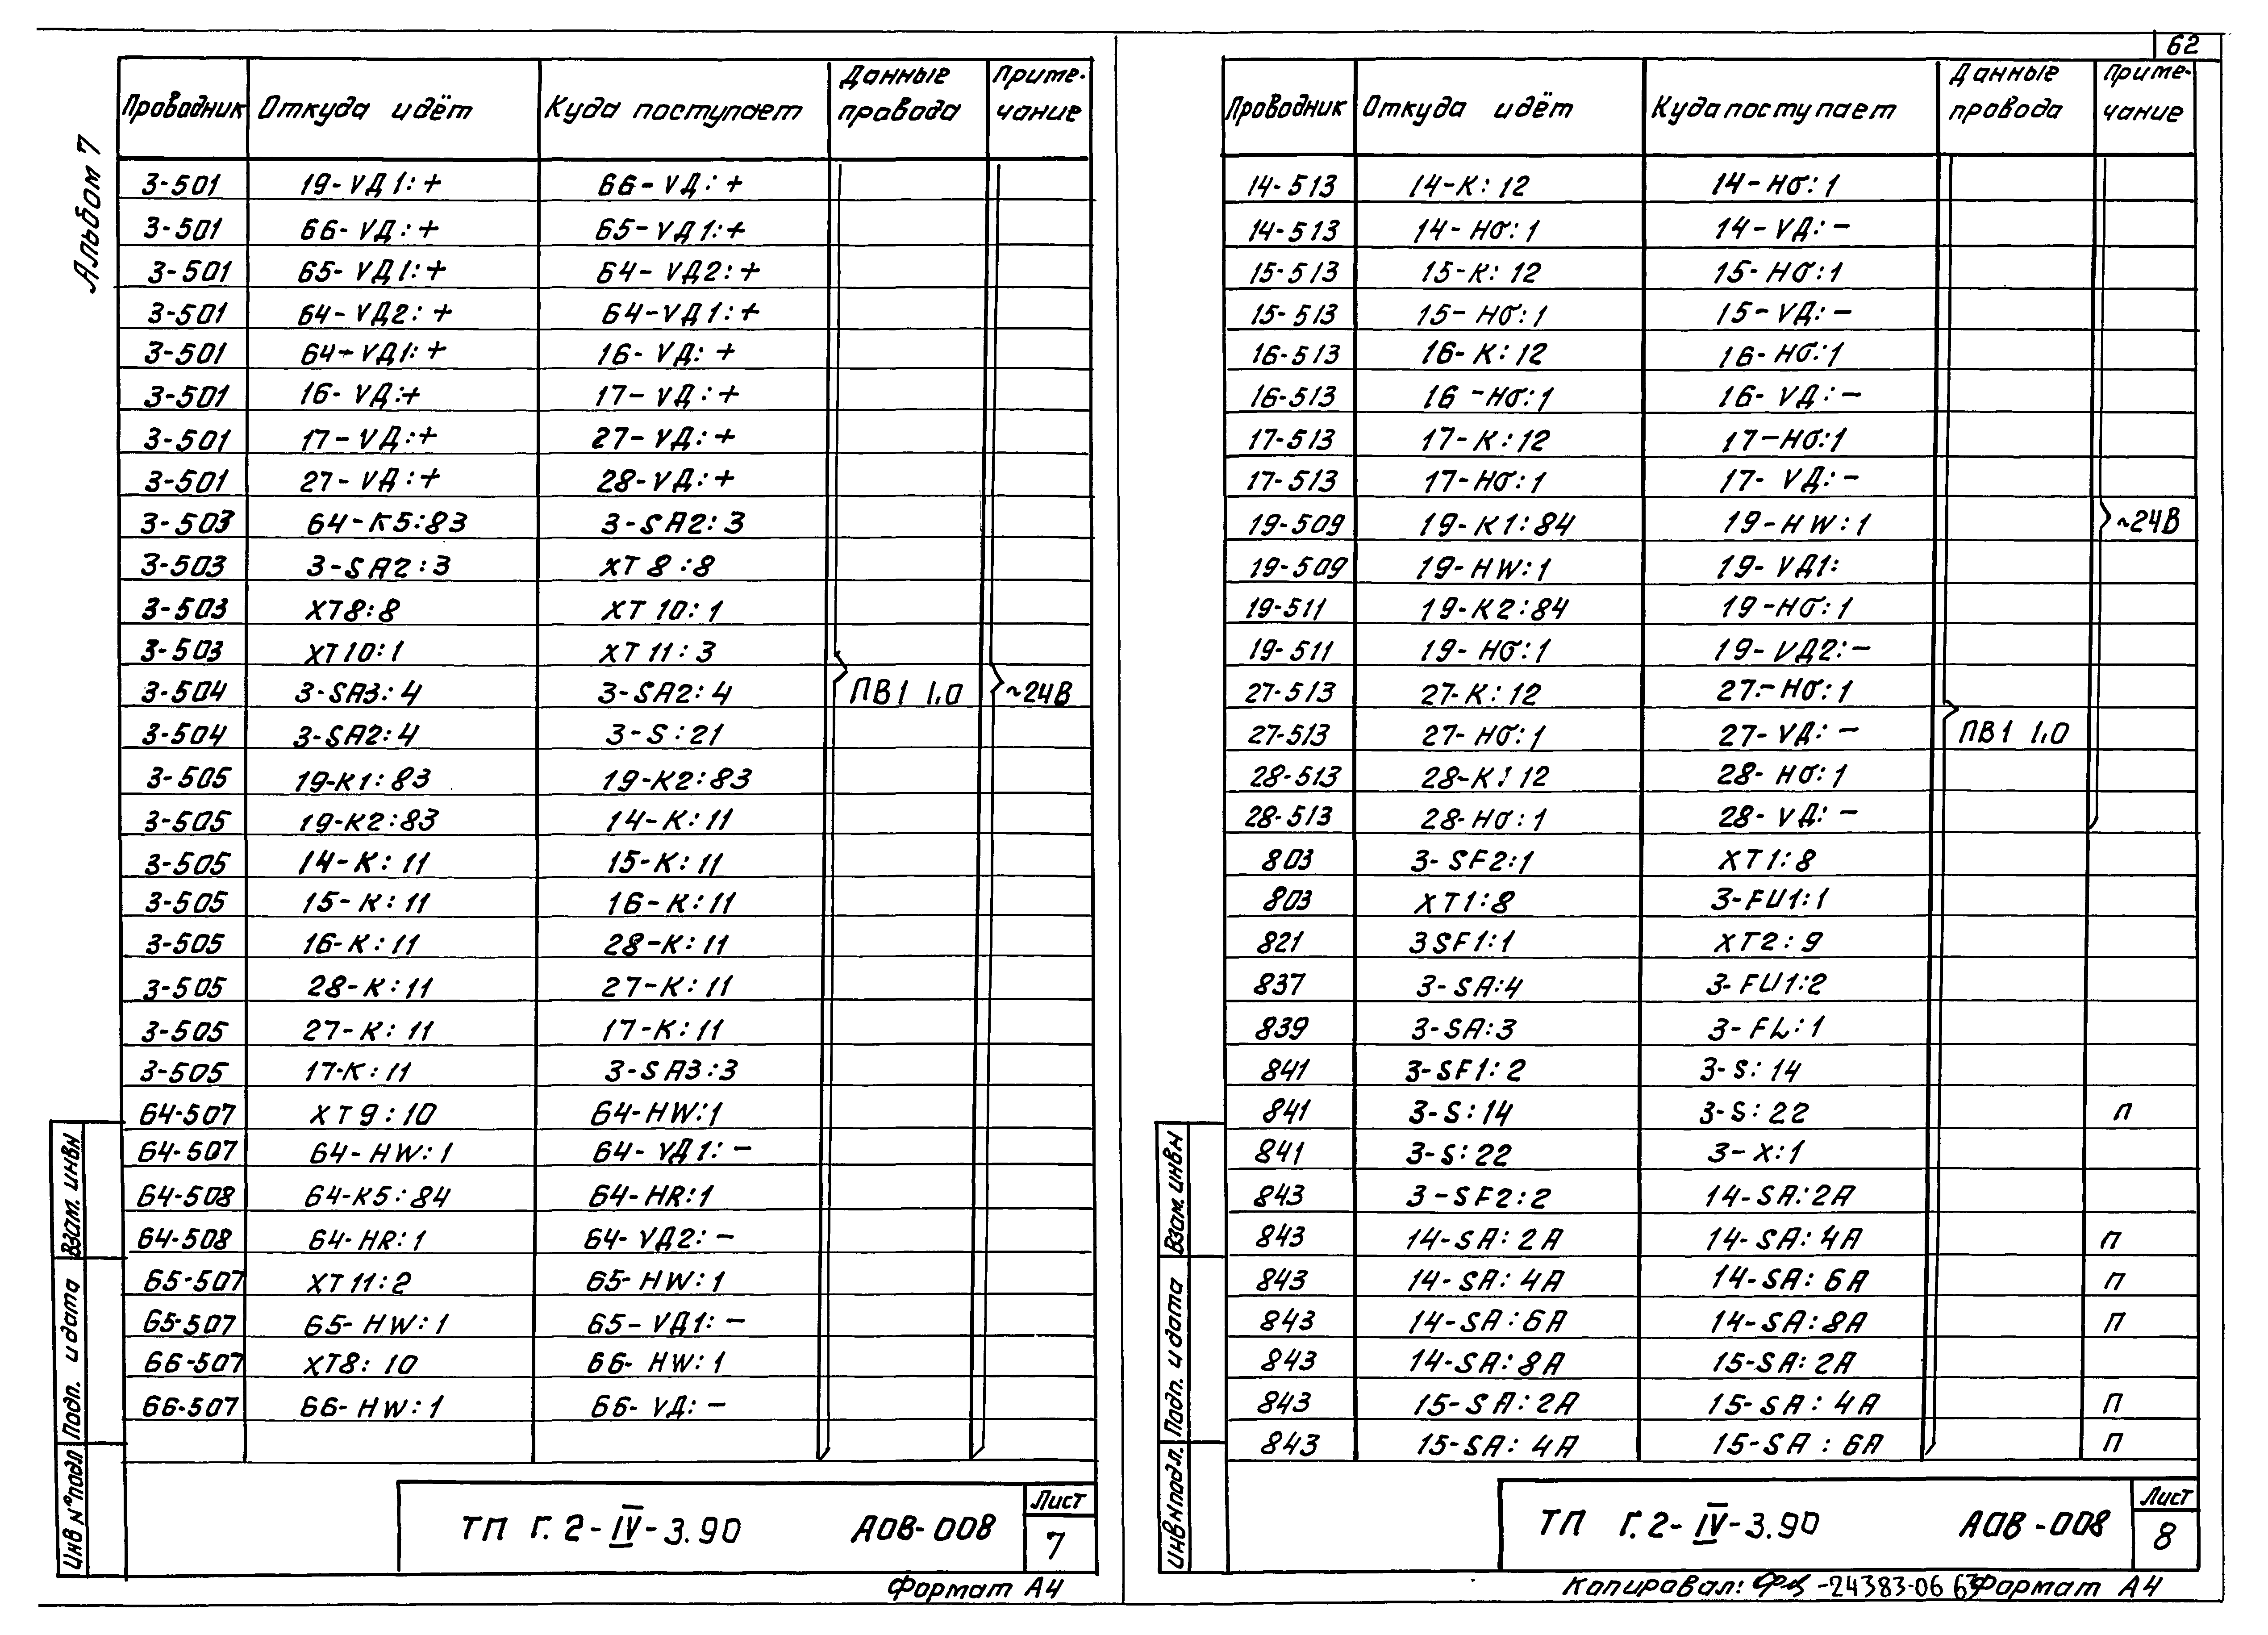 62
Альбом 7
Проводник Откуда идёт Куда поступает Данные провода Приме-чание
3-501 19-VД1:+ 66-VД:+
3-501 66-VД:+ 65-VД1:+
3-501 65-VД1:+ 64-VД2:+
3-501 64-VД2:+ 64-VД1:+
3-501 64-VД1:+ 16-VД:+
3-501 16-VД:+ 17-VД:+
3-501 17-VД:+ 27-VД:+
3-501 27-VД:+ 28-VД:+
3-503 64-K5:83 3-SA2:3
3-503 3-SA2:3 XT8:8
3-503 XT8:8 XT10:1
3-503 XT10:1 XT11:3
3-504 3-SA3:4 3-SA2:4 ПВ1 1,0 ~24В
3-504 3-SA2:4 3-S:21
3-505 19-K1:83 19-K2:83
3-505 19-K2:83 14-K:11
3-505 14-K:11 15-K:11
3-505 15-K:11 16-K:11
3-505 16-K:11 28-K:11
3-505 28-K:11 27-K:11
3-505 27-K:11 17-K:11
3-505 17-K:11 3-SA3:3
64-507 XT9:10 64-HW:1
64-507 64-HW:1 64-VД1:-
64-508 64-K5:84 64-HR:1
64-508 64-HR:1 64-VД2:-
65-507 XT11:2 65-HW:1
65-507 65-HW:1 65-VД1:-
66-507 XT8:10 66-HW:1
66-507 66-HW:1 66-VД:-
Взам. инвн
Подп. и дата
Инв N°подл
ТП Г.2-IV-3.90 АОВ-008 Лист 7
Формат А4
Проводник Откуда идёт Куда поступает Данные провода Приме-чание
14-513 14-K:12 14-HG:1
14-513 14-HG:1 14-VД:-
15-513 15-K:12 15-HG:1
15-513 15-HG:1 15-VД:-
16-513 16-K:12 16-HG:1
16-513 16-HG:1 16-VД:-
17-513 17-K:12 17-HG:1
17-513 17-HG:1 17-VД:-
19-509 19-K1:84 19-HW:1 ~24В
19-509 19-HW:1 19-VД1:
19-511 19-K2:84 19-HG:1
19-511 19-HG:1 19-VД2:-
27-513 27-K:12 27-HG:1
27-513 27-HG:1 27-VД:- ПВ1 1,0
28-513 28-K:12 28-HG:1
28-513 28-HG:1 28-VД:-
803 3-SF2:1 XT1:8
803 XT1:8 3-FU1:1
821 3SF1:1 XT2:9
837 3-SA:4 3-FU1:2
839 3-SA:3 3-FL:1
841 3-SF1:2 3-S:14
841 3-S:14 3-S:22 п
841 3-S:22 3-X:1
843 3-SF2:2 14-SA:2A
843 14-SA:2A 14-SA:4A п
843 14-SA:4A 14-SA:6A п
843 14-SA:6A 14-SA:8A п
843 14-SA:8A 15-SA:2A
843 15-SA:2A 15-SA:4A п
843 15-SA:4A 15-SA:6A п
Взам. инвн
Подп. и дата
Инв N подл.
ТП Г.2-IV-3.90 АОВ-008 Лист 8
Копировал: -24383-06 63 Формат А4